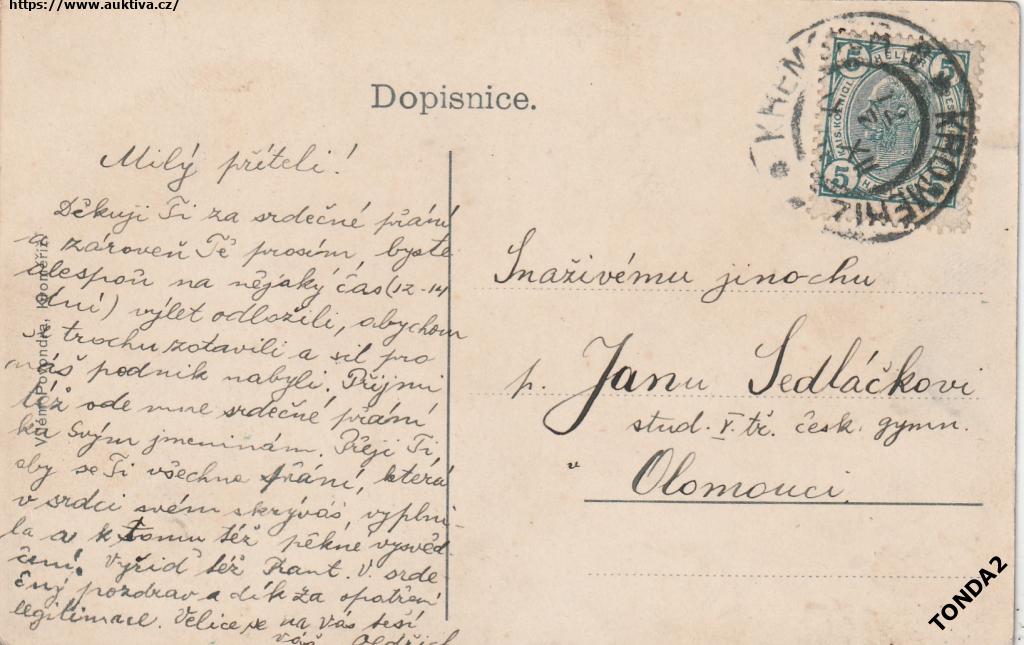 https://www.auktiva.cz/
Dopisnice.
KREMSIER
KROMĚŘÍŽ
5 HELLER 5
KAIS. KOENIGL.
5
Milý příteli!
Děkuji Ti za srdečné přání
a zároveň Tě prosím, byste
alespoň na nějaký čas (12-14
dní) výlet odložili, abychom
se trochu zotavili a sil pro
náš podnik nabyli. Přijmi
též ode mne srdečné přání
ku Svým jmeninám. Přeji Ti,
aby se Ti všechna přání, která
v srdci svém skrýváš, vyplni-
la a k tomu též pěkné vysvěd-
čení. Vyřiď též Frant. V. srde-
čný pozdrav a dík za opatření
legitimace. Velice se na Vás těší
Váš Oldřich
Vilém Povondra, Kroměříž.
Snaživému jinochu
p. Janu Sedláčkovi
stud. V. tř. česk. gymn.
v
Olomouci.
TONDA2